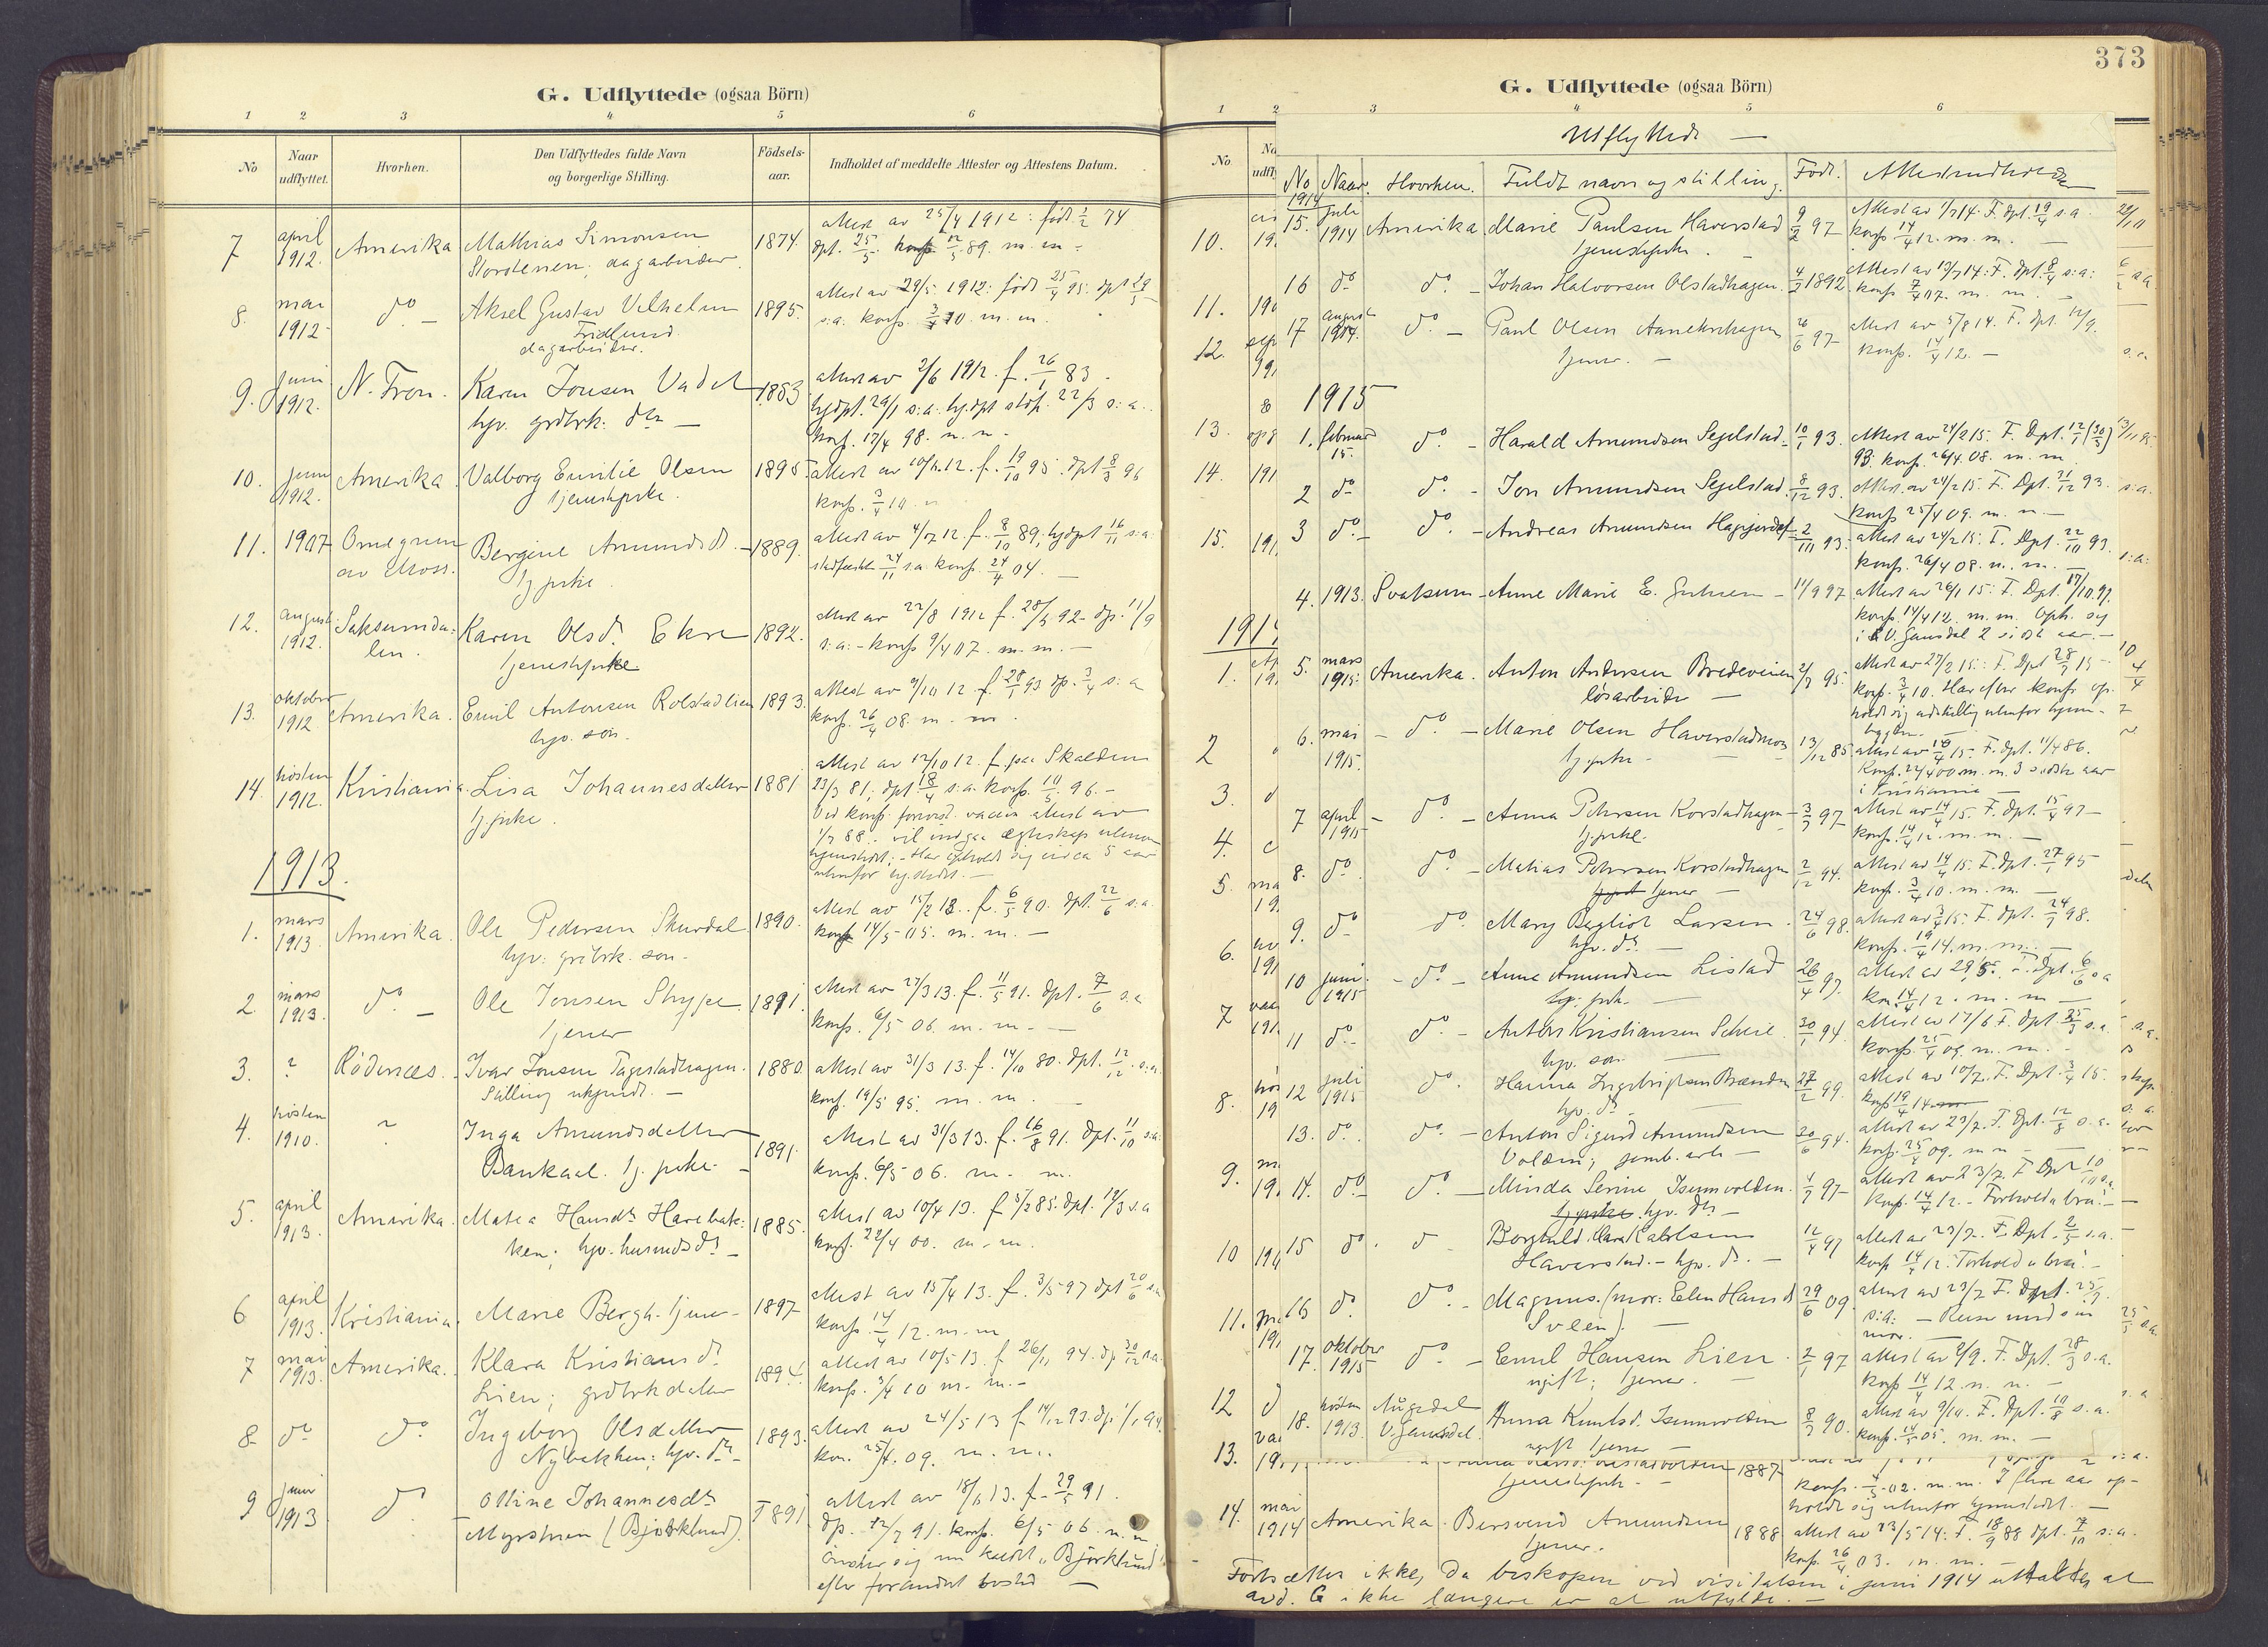 G. Udflyttede (ogsaa Börn)
1 2 3 4 5 6
No
Naar udflyttet.
Hvorhen.
Den Udflyttedes fulde Navn og borgerlige Stilling.
Födsels-aar.
Indholdet af meddelte Attester og Attestens Datum.
7 april 1912. Amerika Mathias Simonsen 1874. attest av 25/4 1912: födt 1/2 74
dagarbeider. döpt. 25/5. konf. 12/5 89. m. m. -
8. mai 1912 do - Aksel Gustav Vilhelm 1895. attest av 29/5 1912: födt 25/4 95. döpt
Fridlund s.a. konf. 3/4 10. m. m.
dagarbeider.
9. juni 1912. N. Fron. Karen Jonsen Vadet 1883 attest av 2/6 1912. f. 26/1 83.
hjv. grdbrk. dtr - hjdpt. 29/1 s.a. hjdpt stdf. 22/3 s.a.
konf. 17/4 98. m. m.
10. juni 1912. Amerika. Valborg Emilie Olsen 1895. attest av 10/6 12. f. 19/10 95. dpt 8/3 96
tjenestepike. konf. 3/4 10. m
11. 1907 Omegnen Bergine Amundsd. - 1889. attest av 4/7 12. f. 8/10 89. hjdpt 16/11 s.a.
av Moss. tj. pike. stadfæstet 24/11 s.a. konf. 24/4 04. -
12. august 1912. Saksumda- Karen Olsd. Ekre 1892. attest av 22/8 1912 f. 28/5 92 dp. 11/9
len. tjenestepike s.a. - konf 9/4 07. m. m. -
13. oktober 1912 Amerika. Emil Antonsen Rolstadlien 1893. attest av 9/10 12 f. 28/1 93 dp. 3/4 s.a
hjv. sön. konf. 26/4 08. m. m.
14. hösten 1912. Kristiania. Lisa Johannesdatter 1881 attest av 12/10 12. f. paa
tj. pike. 23/3 81; dpt. 18/4 s.a. konf. 10/5 96. -
Ved konf. forevist vaccin attest av
1/7 88. vil indgaa ægteskap utenom
hjemstedet. - Har opholdt sig circa 5 aar
utenfor bygdelaget. -
1913.
1. mars 1913 Amerika. Ole Pedersen Skurdal 1890. attest av 15/2 13. f. 6/5 90. dpt. 22/6 s.a.
hjv. grdbrk. sön - konf 14/5 05. m. m. -
2. mars 1913. do - Ole Jonsen Stryje 1891. attest av 27/3 13. f. 11/5 91. dpt. 7/6 s.a
tjener konf. 6/5 06. m. m. -
3. ? Rödenæs. Ivar Jonsen Tagestadhagen. 1880. attest av 31/3 13. f. 14/10 80. dpt. 12/12 s.a.
Stilling ukjendt. - konf. 19/5 95. m. m.
4. hösten 1910. ? Inga Amundsdatter 1891. attest av 31/3 13. f. 16/8 91. dpt. 11/10 s.a.
Bankaal. tj. pike. konf. 6/5 06. m. m.
5. april 1913. Amerika. Matea Hansdtr Harebak- 1885. attest av 10/4 13. f 5/2 85. dpt. 19/3 s.a
ken; hjv. husmdsdtr - konf. 22/4 00. m. m.
6 april 1913. Kristiania. Marie Bergh. tjener - 1897 attest av 15/4 13. f. 3/5 97 dpt 20/6 s.a
konf. 14/4 12. m. m
7 mai 1913. Amerika. Klara Kristiansd. 1894. attest av 10/5 13. f 26/11 94. dp 30/12 s.a.
Lien; grdbrk datter konf. 3/4 10 m. m. -
8 do do Ingeborg Olsdatter 1893. attest av 24/5 13 f 14/12 93. dp. 1/1 94.
Nybakken; hjv. dtr - kon. 25/4. 09. m. m.
9 juni 1913 do Olline Johannesdtr 1891 attest av 18/6 13. f. 29/5 91.
Myrstuen (Björklund). dp. 12/7 91. konf. 6/5 06. m. m
Önsker sig nu kaldt "Björklund"
efter forandret bosted -
373
G. Udflyttede (ogsaa Börn)
1 2 3 4 5 6
No
Utflyttede -
No Naar. Hvorhen. Fuldt navn og stilling. Födt. Attestindhold
1914
15. juli 1914 Amerika. Marie Paulsen Haverstad 9/2 97 Attest av 1/7 14. F. dpt. 19/4 s.a.
tjenestepike. - konf 14/4 12. m. m. -
16 do do - Johan Halvorsen Olstadhagen. 4/2 1892 Attest av 13/7 14: F. dpt. 8/4 s.a:
konf 7/4 07. m. m. -
17 august 1914. do - Paul Olsen 26/6 97 attest av 5/8 14. F. dpt. 12/9.
tjener. - konf. 14/4 12. -
1915
1. februar 15. do - Harald Amundsen Segelstad - 10/1 93. Attest av 24/2 15. F. Dpt. 12/1 (30/3)
93. konf. 26/4 08. m. m
2 do do - Jon Amundsen Segelstad. 8/12 93. Attest av 24/2 15. F. Dpt. 31/12 93.
konf 25/4 09. m. m. -
3 do - do - Andreas Amundsen 2/10 93. attest av 24/2 15. F. Dpt. 22/10 93
konf. 26/4 08. m. m. -
4. 1913. Svatsum - Anne Marie E. - 11/9 97 attest av 26/1 15: F. Dpt. 17/10 97.
konf. 14/4 12. m. m. Oph. sig
i V. Gausdal 2 sidste aar. -
5. mars 1915. Amerika. Anton Andersen Bredeveien 2/7 95. attest av 27/2 15: F. Dpt 28/7 15 -
lösarbeider - konf. 3/4 10. Har efter konf. op-
holdt sig adskillig utenfor hjem-
bygden. -
6. mai 1915. - do - Marie Olsen Haverstadmoen 13/12 85. attest av 16/4 15. F. dpt. 11/4 86.
tj. pike - Konf. 22/4 00. m. m. 3 sidste aar
i Kristiania -
7 april 1915 - do - Anna Petersen Korstadhagen - 3/3 97 attest av 14/4 15. F. dpt. 15/4 97 -
tj. pike. konf. 14/4 12. m. m. -
8. do. do - Matias Petersen Korstadhagen 2/12 94. attest av 14/4 15. F. dpt. 27/1 95
tjener - konf. 3/4 10. m. m. -
9. do do. Mary Bergliot Larsen. 24/6 98. attest av 3/5 15: F. dpt. 24/7 98.
hjv. dtr. - konf. 19/4 14. m. m. -
10 juni 1915 - do - Anne Amundsen Listad 26/4 97 attest av 29/5. - F. Dpt. 6/6 s a
konf. 14/4 12. m. m -
11 do - do - Anton Kristiansen Scheie. 30/1 94. attest av 17/6 F. dpt 25/3 s.a.
hjv. sön - konf. 25/4 09. m. m. -
12 juli 1915 do. Hanna Ingebrigtsen Brænden 27/2 99. attest av 10/7. F. Dpt. 3/4 15.
hjv. dtr. - konf 19/4 14
13. do. do. - Anton Sigurd Amundsen 20/6 94. attest av 23/7. F. Dpt. 12/8 s.a.
Volden; - konf. 25/4 09. m m
14. do. do. - Minda Serine Isumvolden. 4/9 97 - attest av 23/7. F. Dpt 10
hjv. dtr. - konf. 14/4 12. - Forhold bra! -
15 do. do Borghild Clara Karlsen 12/4 97 attest av 23/7. F. Dpt. 2/5 s.a.
Haverstad. - hjv. dtr. - konf 14/4 12. Forhold bra! -
16 do do - Magnus. (mor: Elen Hansd 29/6 09. attest av 23/7 F. Dpt. 25/7
Sveen). - s.a: - Reiser med sin
mor. -
17. oktober 1915 do - Emil Hansen Lien 2/1 97 attest av 2/9. F. Dpt. 28/3 s.a.
ugift; tjener. - konf 14/4 12. m. m. -
18. hösten 1913. V. Gausdal. Anna Knutsd. Isumvolden 8/7 90. attest av 9/10. F. Dpt. 10/8 s.a.
ugift tjener - konf. 14/5 05. m. m. -
1887
tjenestepike - konf. 02. m. m. I flere aar op-
holdt sig utenfor hjemstedet. -
14. mai 1914 Amerika. Bersvend Amundsen 1888 attest av 23/5 14: F. 18/9 88 dpt. 7/10 s.a.
tjener. konf. 26/4 03. m. m. -
Fortsættes ikke, da biskopen ved visitatsen i juni 1914 uttalte, at
avd. G ikke længere er at utfylde. -